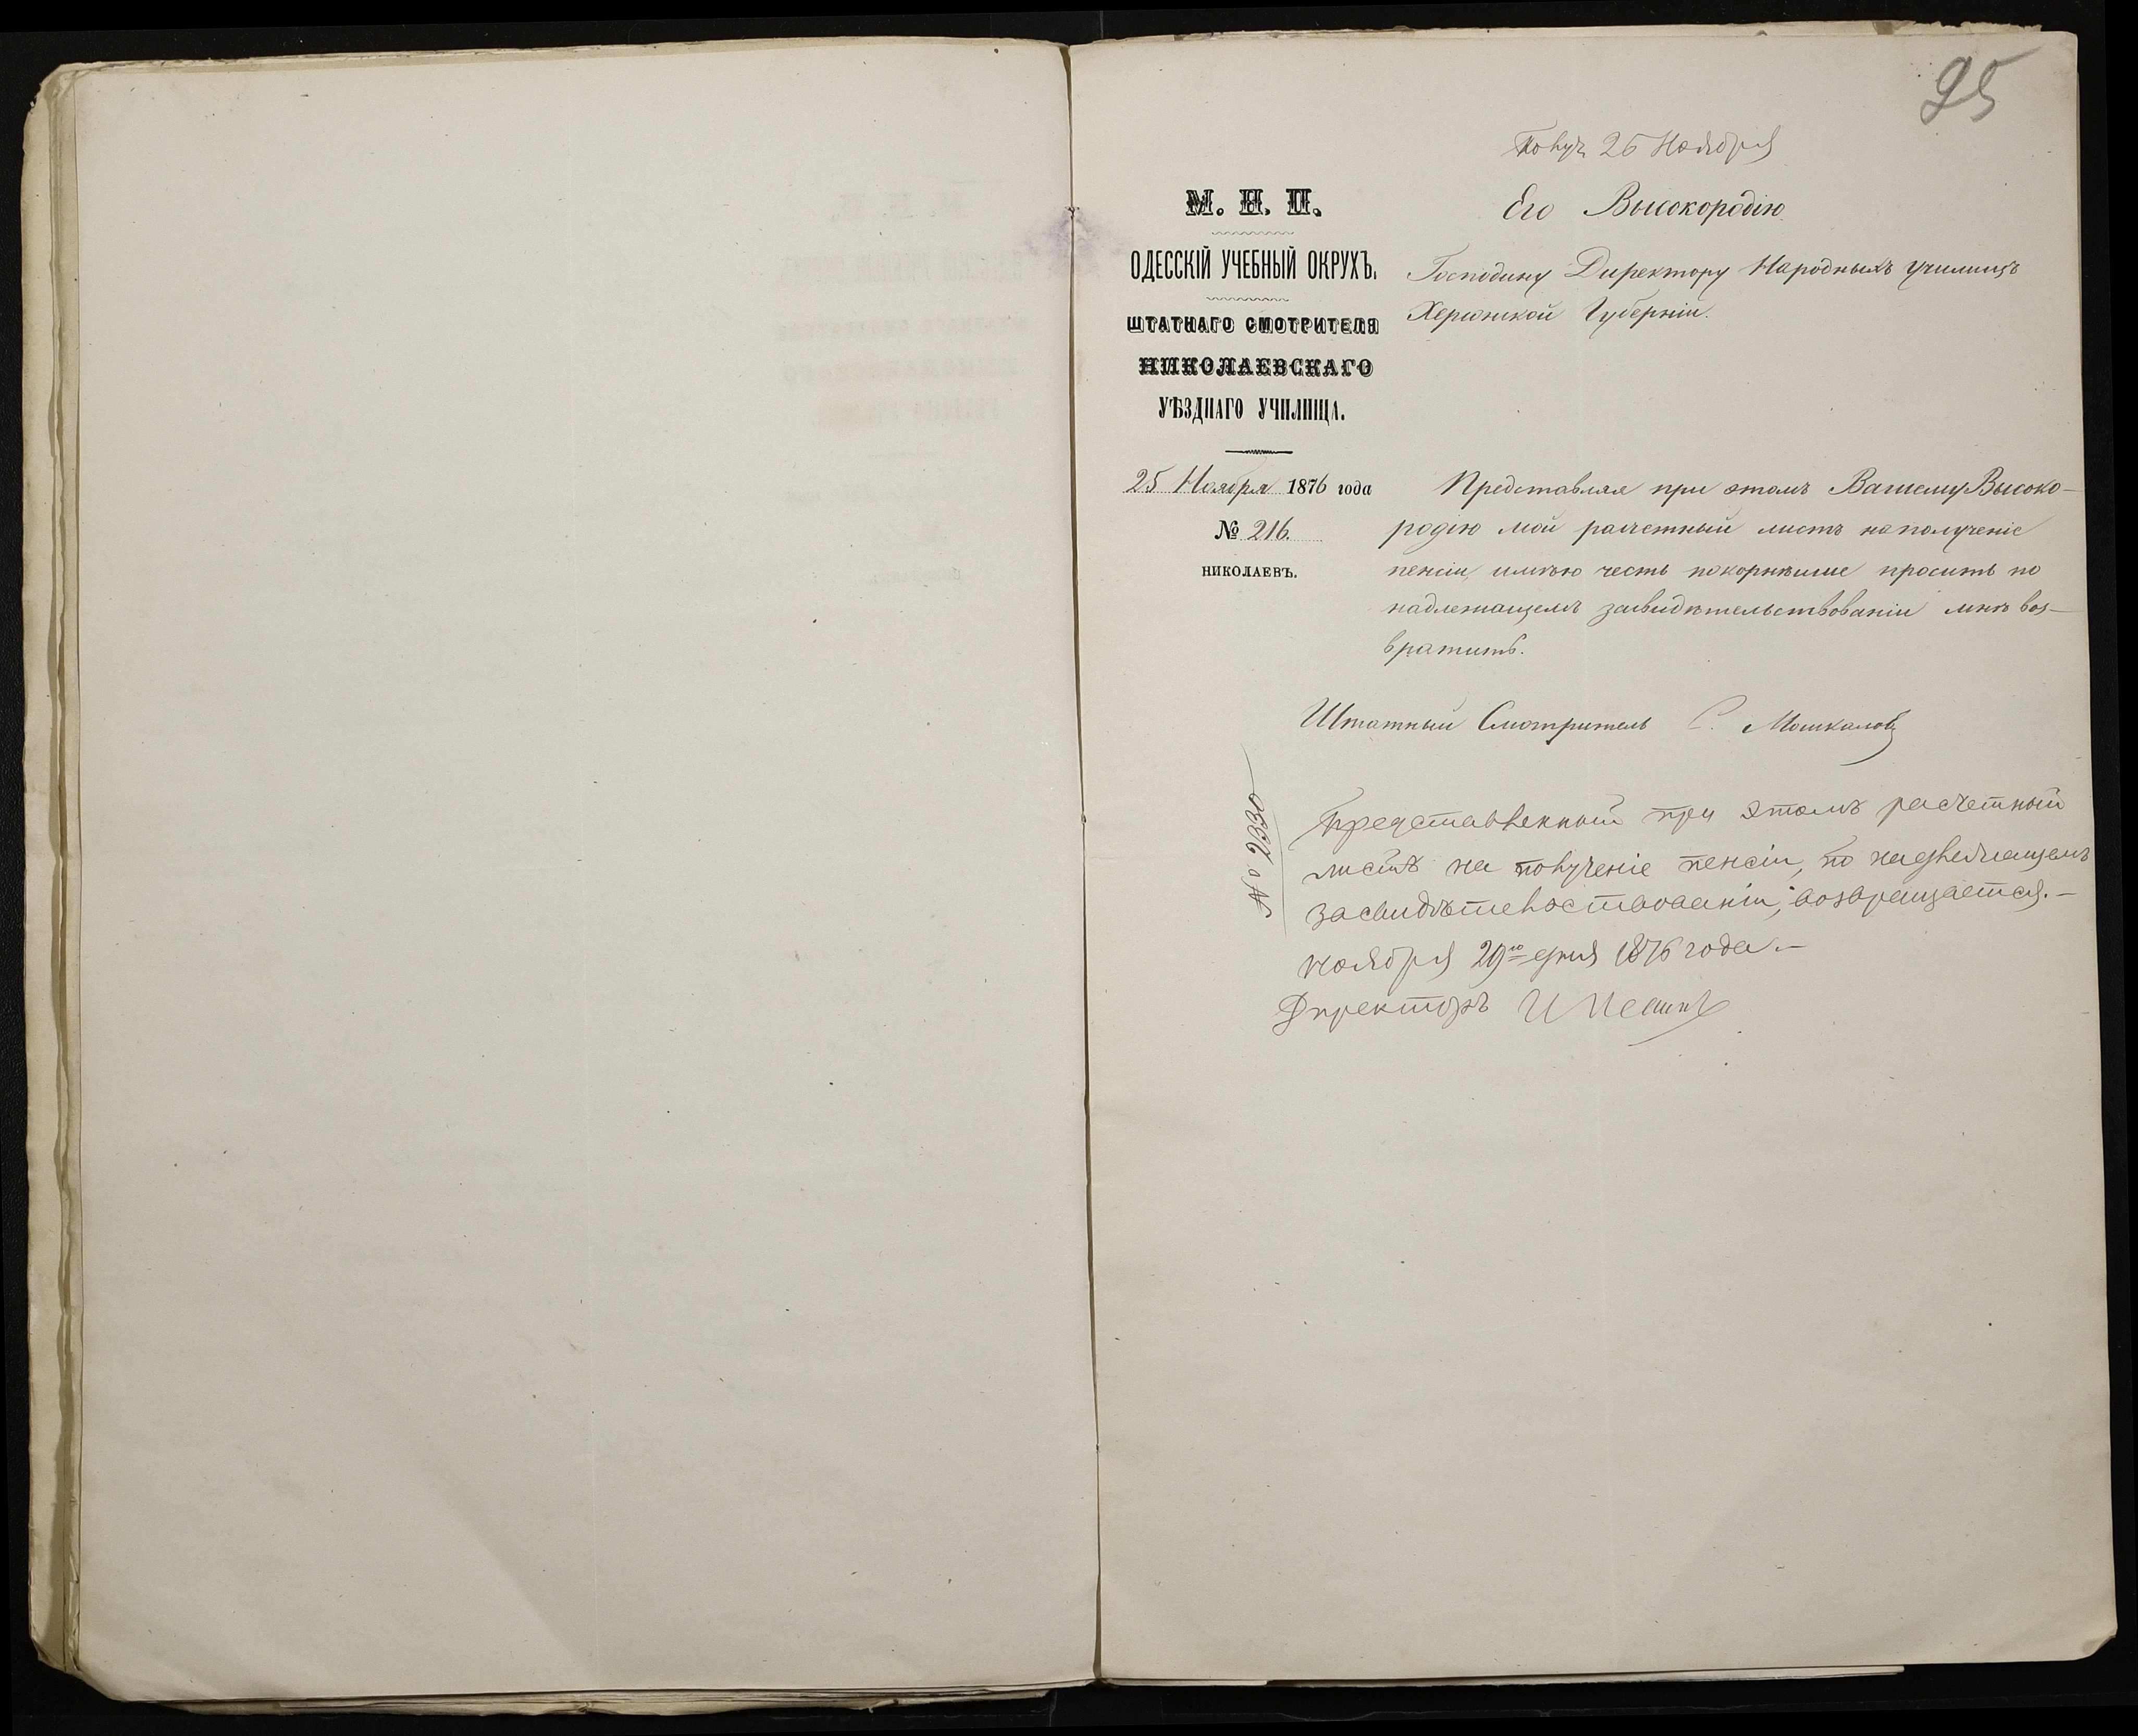 95
Получ. 26 Ноября
М. Н. П.
ОДЕССКІЙ УЧЕБНЫЙ ОКРУХЪ.
ШТАТНАГО СМОТРИТЕЛЯ
НИКОЛАЕВСКАГО
УѢЗДНАГО УЧИЛИЩА.
25 Ноября 1876 года
№ 216.
НИКОЛАЕВЪ.
Его Высокородію
Господину Директору Народныхъ Училищъ
Херсонской Губерніи.
Представляя при этомъ Вашему Высоко-
родію мой расчетный листъ на полученіе
пенсіи, имѣю честь покорнѣише просить по
надлежащемъ засвидѣтельствованіи мнѣ воз-
вратить.
Штатный Смотритель С. Мошкалов
№ 2330
Представленный при этомъ расчетный
листъ на полученіе пенсіи, по надлежащемъ
засвидѣтельствованіи, возвращается.—
Ноября 29го дня 1876 года.—
Директоръ И